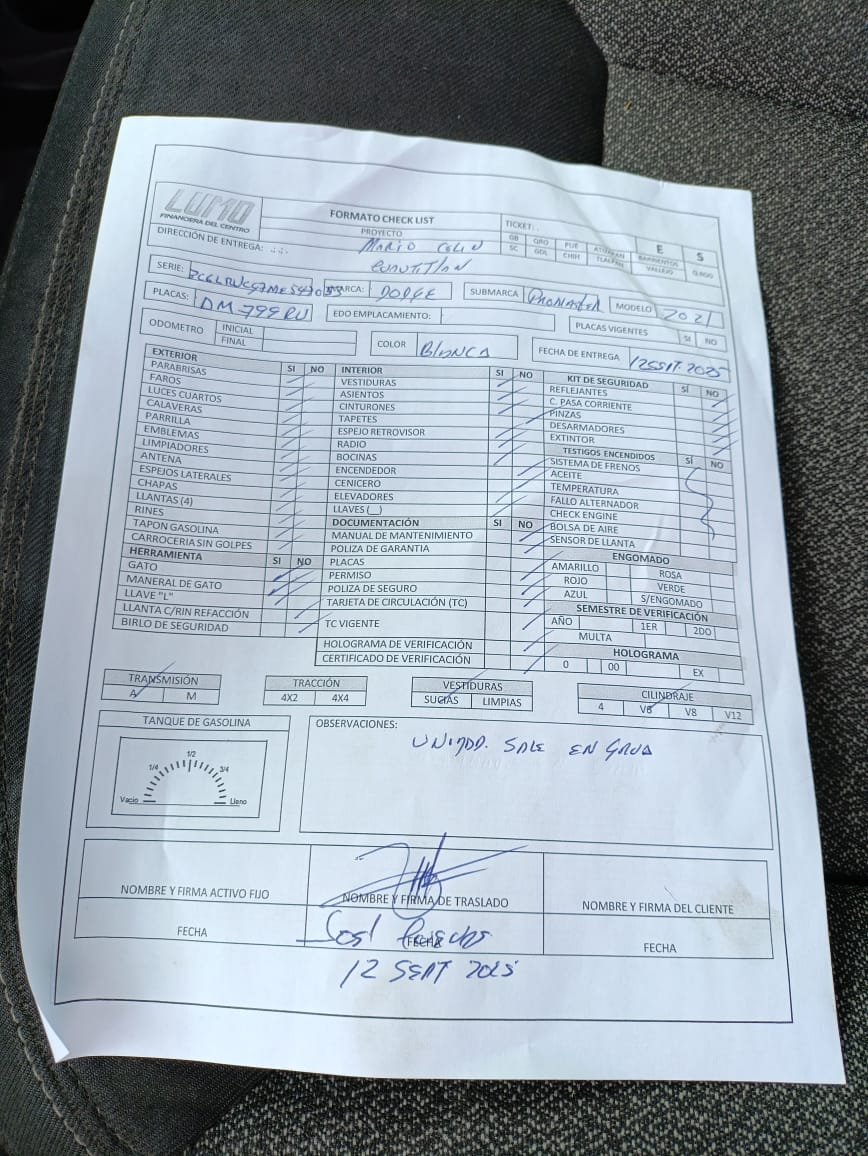 LUMO
FINANCIERA DEL CENTRO
FORMATO CHECK LIST
PROYECTO
TICKET:
GB QRO PUE ATIZAPAN BARRIENTOS E S
SC GDL CHIH TLALPAN VALLEJO
DIRECCIÓN DE ENTREGA: Mario Colin
Cuautitlan
SERIE: MARCA: DODGE SUBMARCA ProMaster MODELO 2021
PLACAS: DM 799 RU EDO EMPLACAMIENTO: PLACAS VIGENTES SI NO
ODOMETRO INICIAL
FINAL
COLOR Blanca FECHA DE ENTREGA 12 SEPT. 2025
EXTERIOR SI NO
PARABRISAS
FAROS
LUCES CUARTOS
CALAVERAS
PARRILLA
EMBLEMAS
LIMPIADORES
ANTENA
ESPEJOS LATERALES
CHAPAS
LLANTAS (4)
RINES
TAPON GASOLINA
CARROCERIA SIN GOLPES
HERRAMIENTA SI NO
GATO
MANERAL DE GATO
LLAVE "L"
LLANTA C/RIN REFACCIÓN
BIRLO DE SEGURIDAD
INTERIOR SI NO
VESTIDURAS
ASIENTOS
CINTURONES
TAPETES
ESPEJO RETROVISOR
RADIO
BOCINAS
ENCENDEDOR
CENICERO
ELEVADORES
LLAVES (__)
DOCUMENTACIÓN SI NO
MANUAL DE MANTENIMIENTO
POLIZA DE GARANTIA
PLACAS
PERMISO
POLIZA DE SEGURO
TARJETA DE CIRCULACIÓN (TC)
TC VIGENTE
HOLOGRAMA DE VERIFICACIÓN
CERTIFICADO DE VERIFICACIÓN
KIT DE SEGURIDAD SÍ NO
REFLEJANTES
C. PASA CORRIENTE
PINZAS
DESARMADORES
EXTINTOR
TESTIGOS ENCENDIDOS SÍ NO
SISTEMA DE FRENOS
ACEITE
TEMPERATURA
FALLO ALTERNADOR
CHECK ENGINE
BOLSA DE AIRE
SENSOR DE LLANTA
ENGOMADO
AMARILLO ROSA
ROJO VERDE
AZUL S/ENGOMADO
SEMESTRE DE VERIFICACIÓN
AÑO 1ER 2DO
MULTA
HOLOGRAMA
0 00 EX
TRANSMISIÓN
A M
TRACCIÓN
4X2 4X4
VESTIDURAS
SUCIAS LIMPIAS
CILINDRAJE
4 V6 V8 V12
TANQUE DE GASOLINA
1/4 1/2 3/4
Vacio Lleno
OBSERVACIONES:
UNIDAD. SALE EN GRUA
NOMBRE Y FIRMA ACTIVO FIJO
NOMBRE Y FIRMA DE TRASLADO
NOMBRE Y FIRMA DEL CLIENTE
FECHA
FECHA
FECHA
12 SEPT 2025